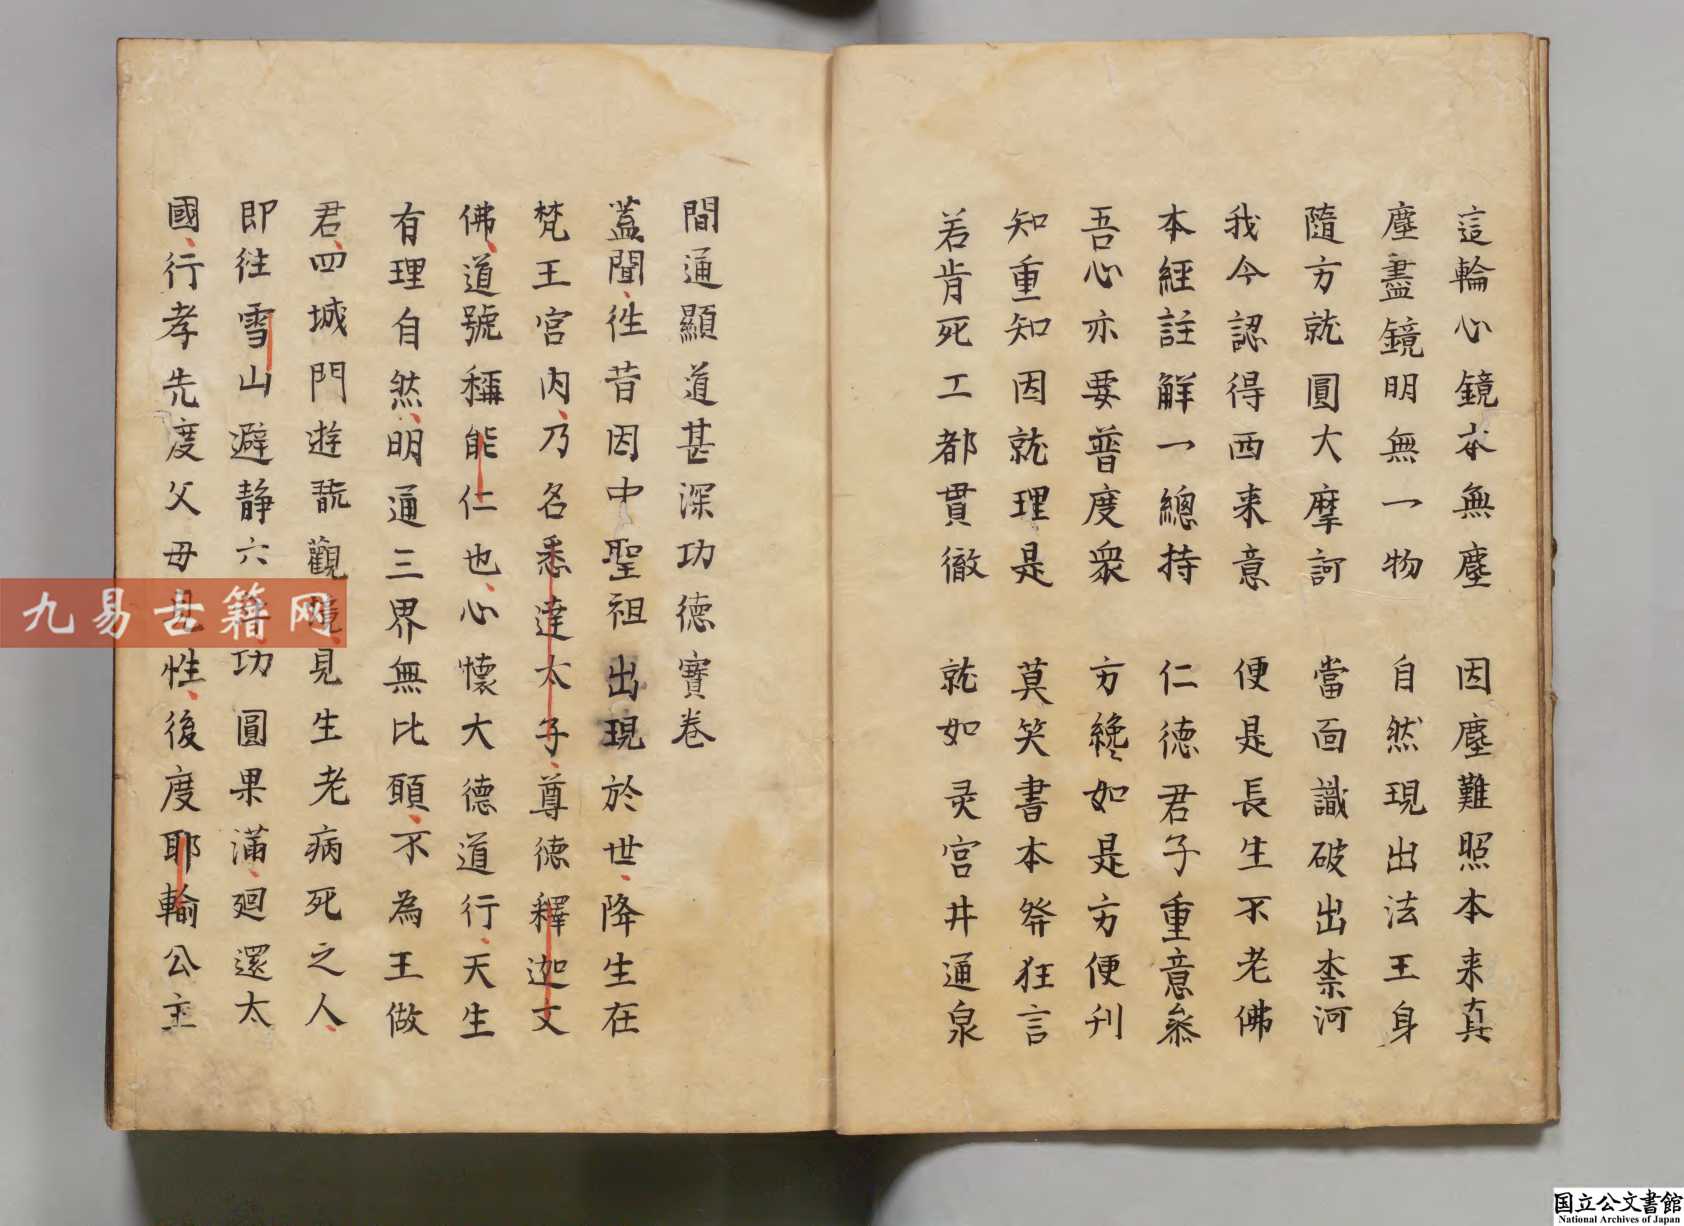 這輪心鏡本無塵　因塵難照本来真
塵盡鏡明無一物　自然現出法王身
隨方就圓大摩訶　當面識破出柰河
我今認得西来意　便是長生不老佛
本經註解一總持　仁德君子重意叅
吾心亦要普度衆　方纔如是方便刋
知重知因就理是　莫笑書本發狂言
若肯死工都貫徹　就如灵宫井通泉
間通顯道甚深功德寶卷
蓋聞往昔因中聖祖出現於世降生在
梵王宮内乃名悉達太子尊德釋迦文
佛道號稱能仁也心懷大德道行天生
有理自然明通三界無比願不為王做
君四城門遊翫觀境見生老病死之人
即徃雪山避静六年功圓果滿廻還太
國行孝先度父母見性後度耶輸公主
九易古籍网
国立公文書館
National Archives of Japan